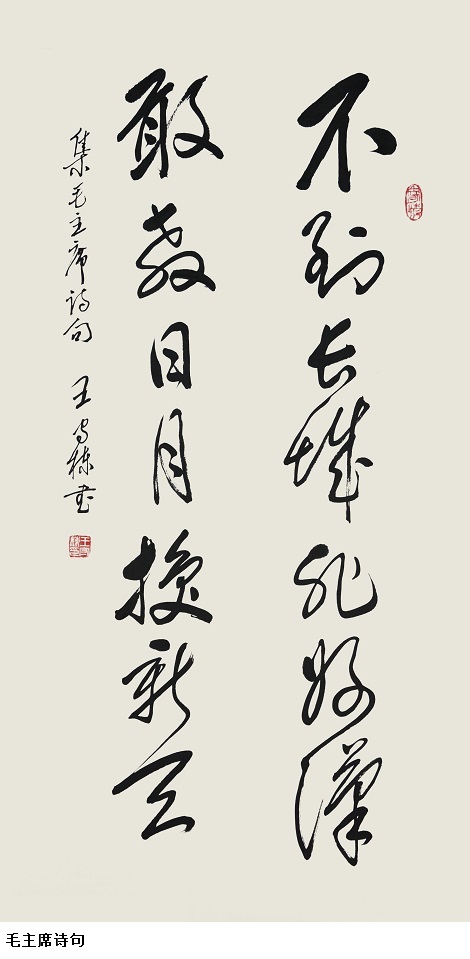 不到长城非好汉
敢教日月换新天
集毛主席诗句 王守栋书
毛主席诗句